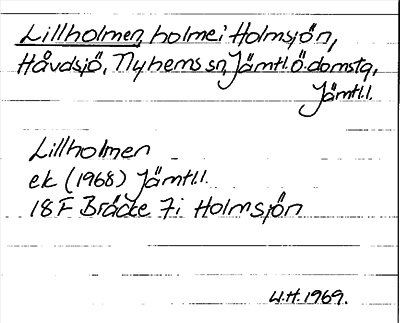 Lillholmen, holme i Holmsjön,
Håvdsjö, Nyhems sn, Jämtl.Ö. domstg,
Jämtl.l.
Lillholmen
ek (1968) Jämtl.l.
18 F Bräcke 7 i Holmsjön
U.H. 1969.